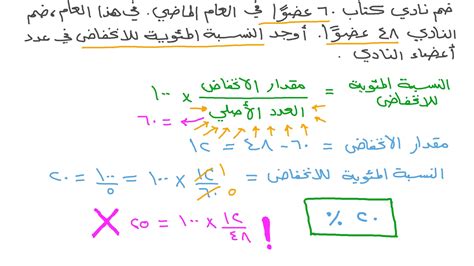 ضم نادي كتاب ٦٠ عضوًا في العام الماضي. في هذا العام، ضم
النادي ٤٨ عضوًا. أوجد النسبة المئوية للانخفاض في عدد
أعضاء النادي.
النسبة المئوية للانخفاض = مقدار الانخفاض / العدد الأصلي × ١٠٠
= ٦٠
مقدار الانخفاض = ٦٠ - ٤٨ = ١٢
النسبة المئوية للانخفاض = ١٢ / ٦٠ × ١٠٠ = ١٠٠ / ٥ = ٢٠
١
٥
١٢ / ٤٨ × ١٠٠ = ٢٥
!
٢٠ %